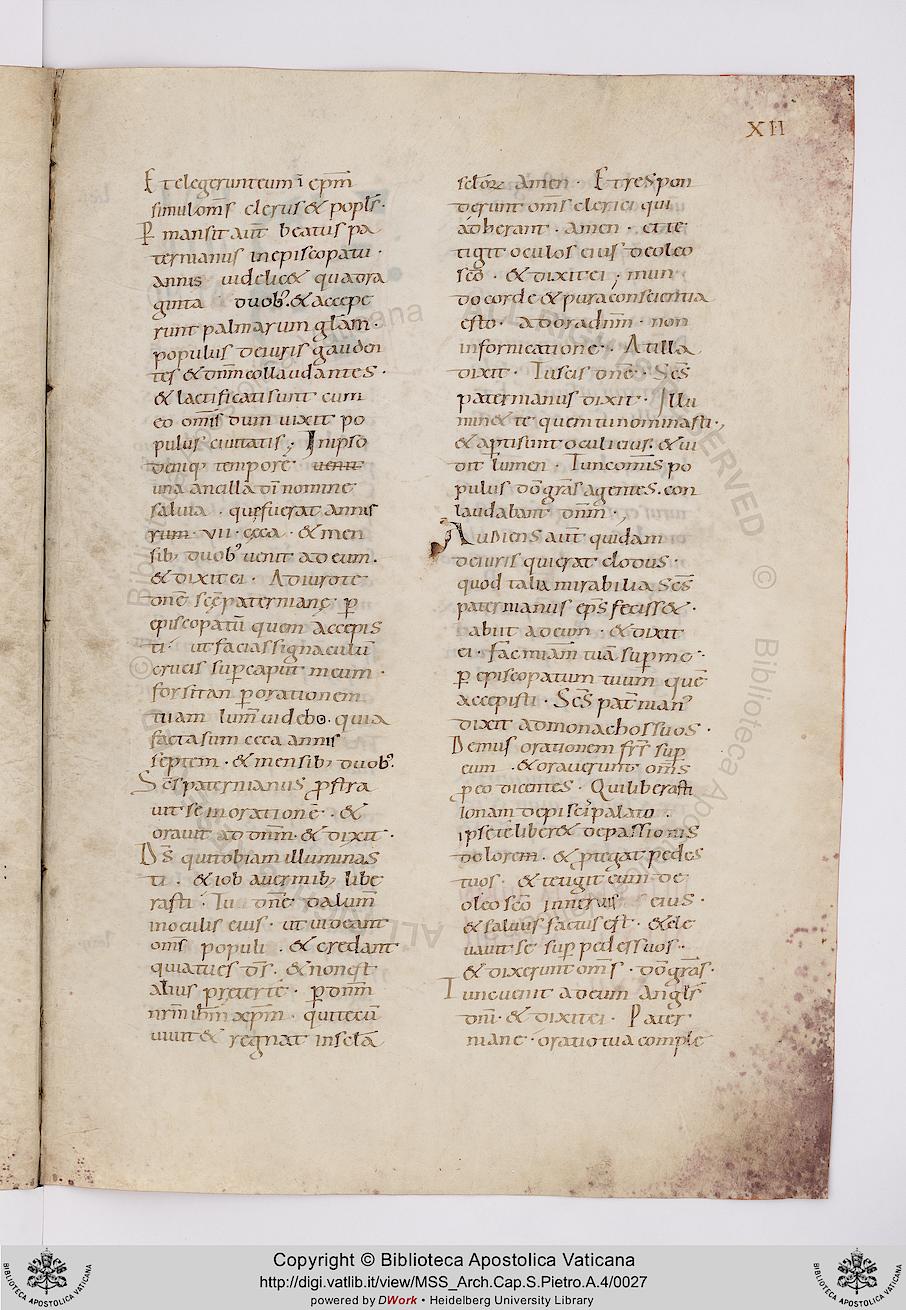 XII
Et elegerunt eum ī ep̄m
simul om̅s clerus & popl̄s·
P̱ mansit aut̄ beatus pa
ternianus in episcopatu·
annis videlic& quadra
ginta duob;. & accepe
runt palmarum gl̄am·
populus de iuris gauden
tes & dn̄m collaudantes·
& laetificati sunt cum
eo om̅s dum uixit po
pulus ciuitatis; In ipso
deniq; tempore· uenit
una ancilla dī nomine
saluia· que fuerat annis
rum· vii· ceca· & men
sib; duob; uenit ad eum·
& dixit ei· Adiuro te
dn̄e sc̄e paterniane· p̱
episcopatū quem accepis
ti· ut facias signaculū
crucis sup̱ caput meum·
forsitan p̱ orationem
tuam lum̄ uidebo· quia
facta sum ceca annis
septem· & mensib; duob;.
Sc̄s paternianus p̱stra
uit se in oratione· &
orauit ad dn̄m· & dixit·
D̄s qui tobiam illuminas
ti· & iob a uermib; libe
rasti· Tu dn̄e da lum̄
in oculis eius· ut uideant
om̅s populi· & credant
quia tu es d̄s· & non est
alius preter te· p̱ dn̄m
nr̄m ihm̄ xp̄m· qui tecū
uiuit & regnat in sel̄a
selōꝝ amen· Et respon
derunt om̅s clerici qui
aderant· amen· et te
tigit oculos eius de oleo
sc̄o· & dixit ei; mun
do corde & pura conscientia
esto· adora dn̄m· non
in fornicatione· At illa
dixit· Tu scis dn̄e· Sc̄s
paternianus dixit· Illu
min& te quem tu nominasti·,
& ap̱ti sunt oculi eius· & ui
dit lumen· Tunc om̅s po
pulus dō grās agentes· con
laudabant dn̄m·,
Audiens aut̄ quidam
de iuris qui erat clodus·
quod talia mirabilia Sc̄s
paternianus ep̄s feciss&·
habiit ad eum· & dixit
ei· fac m̄iam tuā sup̱ me·
p̱ episcopatum tuum quē
accepisti· Sc̄s pat̄nian;
dixit ad monachos suos·
Demus orationem fr̄r̄ sup̱
eum· & orauerunt om̅s
p̱ eo dicentes· Qui liberasti
ionam de pisci palato·
ipse te liber& de passionis
dolorem· & p̱tegat pedes
tuos· & tetigit eum de
oleo sc̄o in neruis eius·
& saluus factus est· & ele
uauit se sup̱ pedes suos·
& dixerunt om̅s· dō grās·
Tunc uenit ad eum angl̄s
dn̄i· & dixit ei· Pater
niane· oratio tua comple
Copyright © Biblioteca Apostolica Vaticana
http://digi.vatlib.it/view/MSS_Arch.Cap.S.Pietro.A.4/0027
powered by DWork • Heidelberg University Library